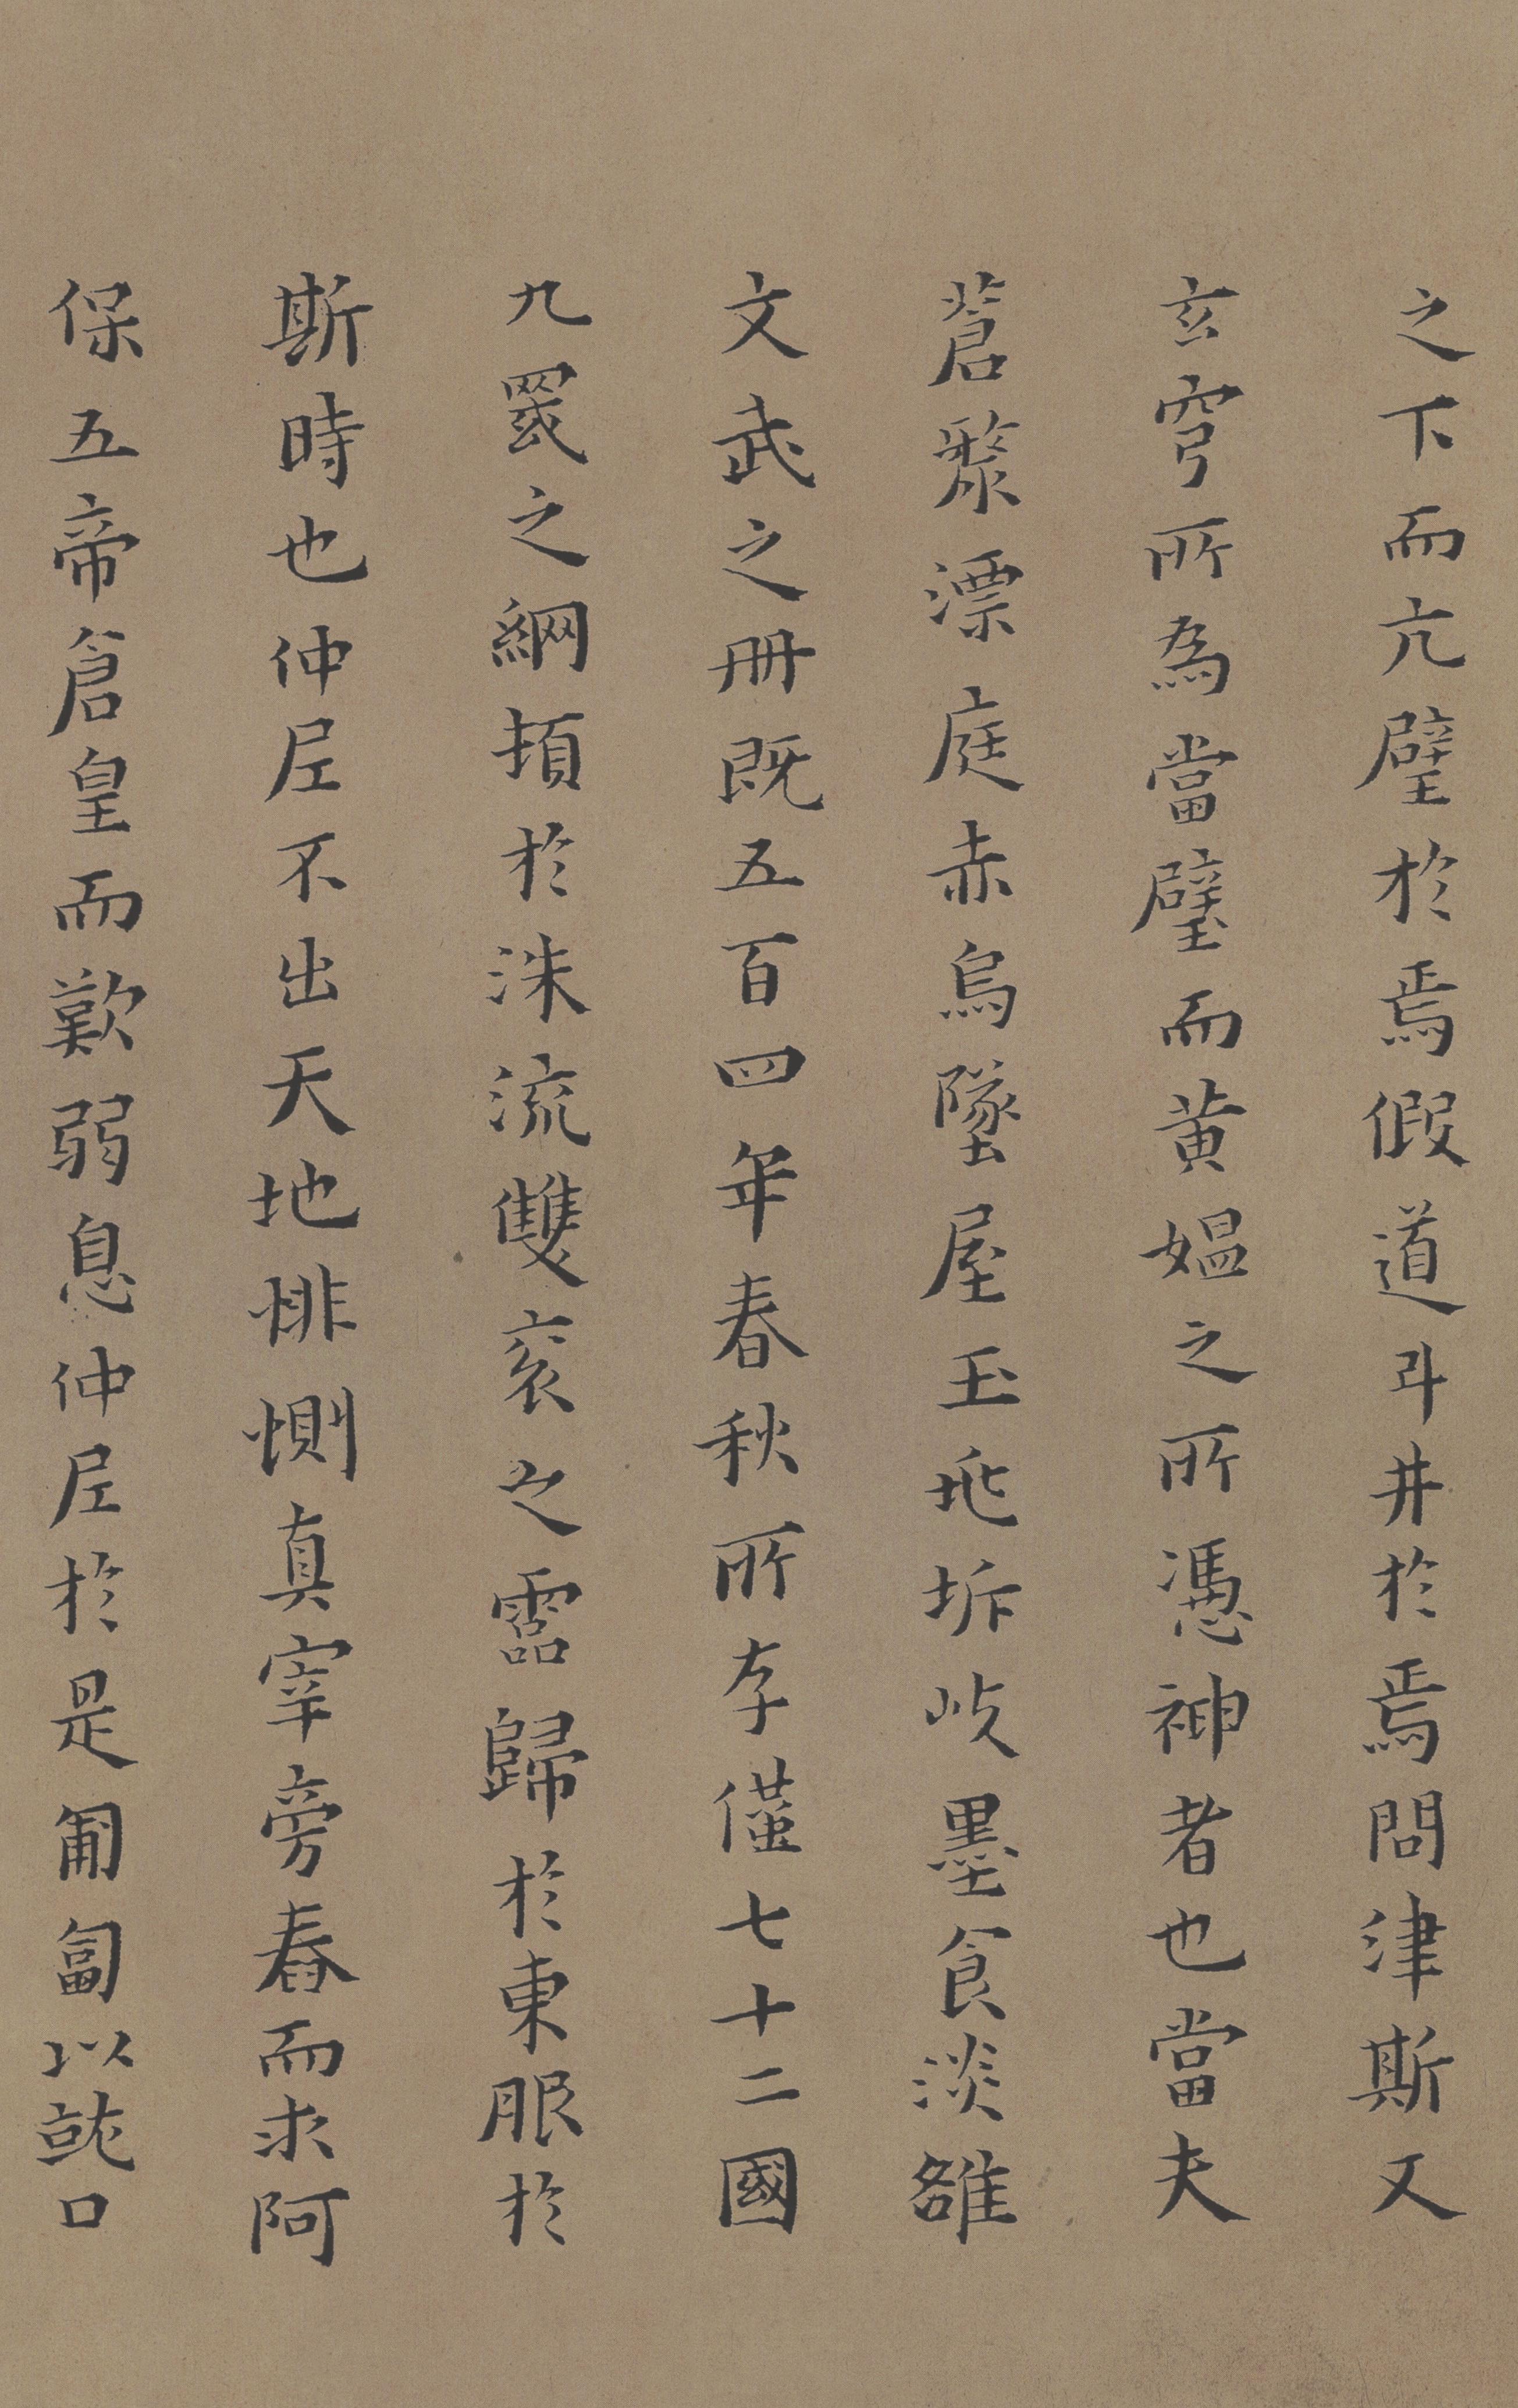 之下而亢璧於焉假道斗井於焉問津斯又
玄穹所為當璧而黃媼之所憑神者也當夫
蒼漦漂庭赤烏墜屋玉兆坼岐墨食淡雒
文武之冊既五百四年春秋所存僅七十二國
九罭之綱頓於洙流雙衮之靈歸於東服於
斯時也仲尼不出天地悱惻真宰旁舂而求阿
保五帝倉皇而歎弱息仲尼於是匍匐以就口